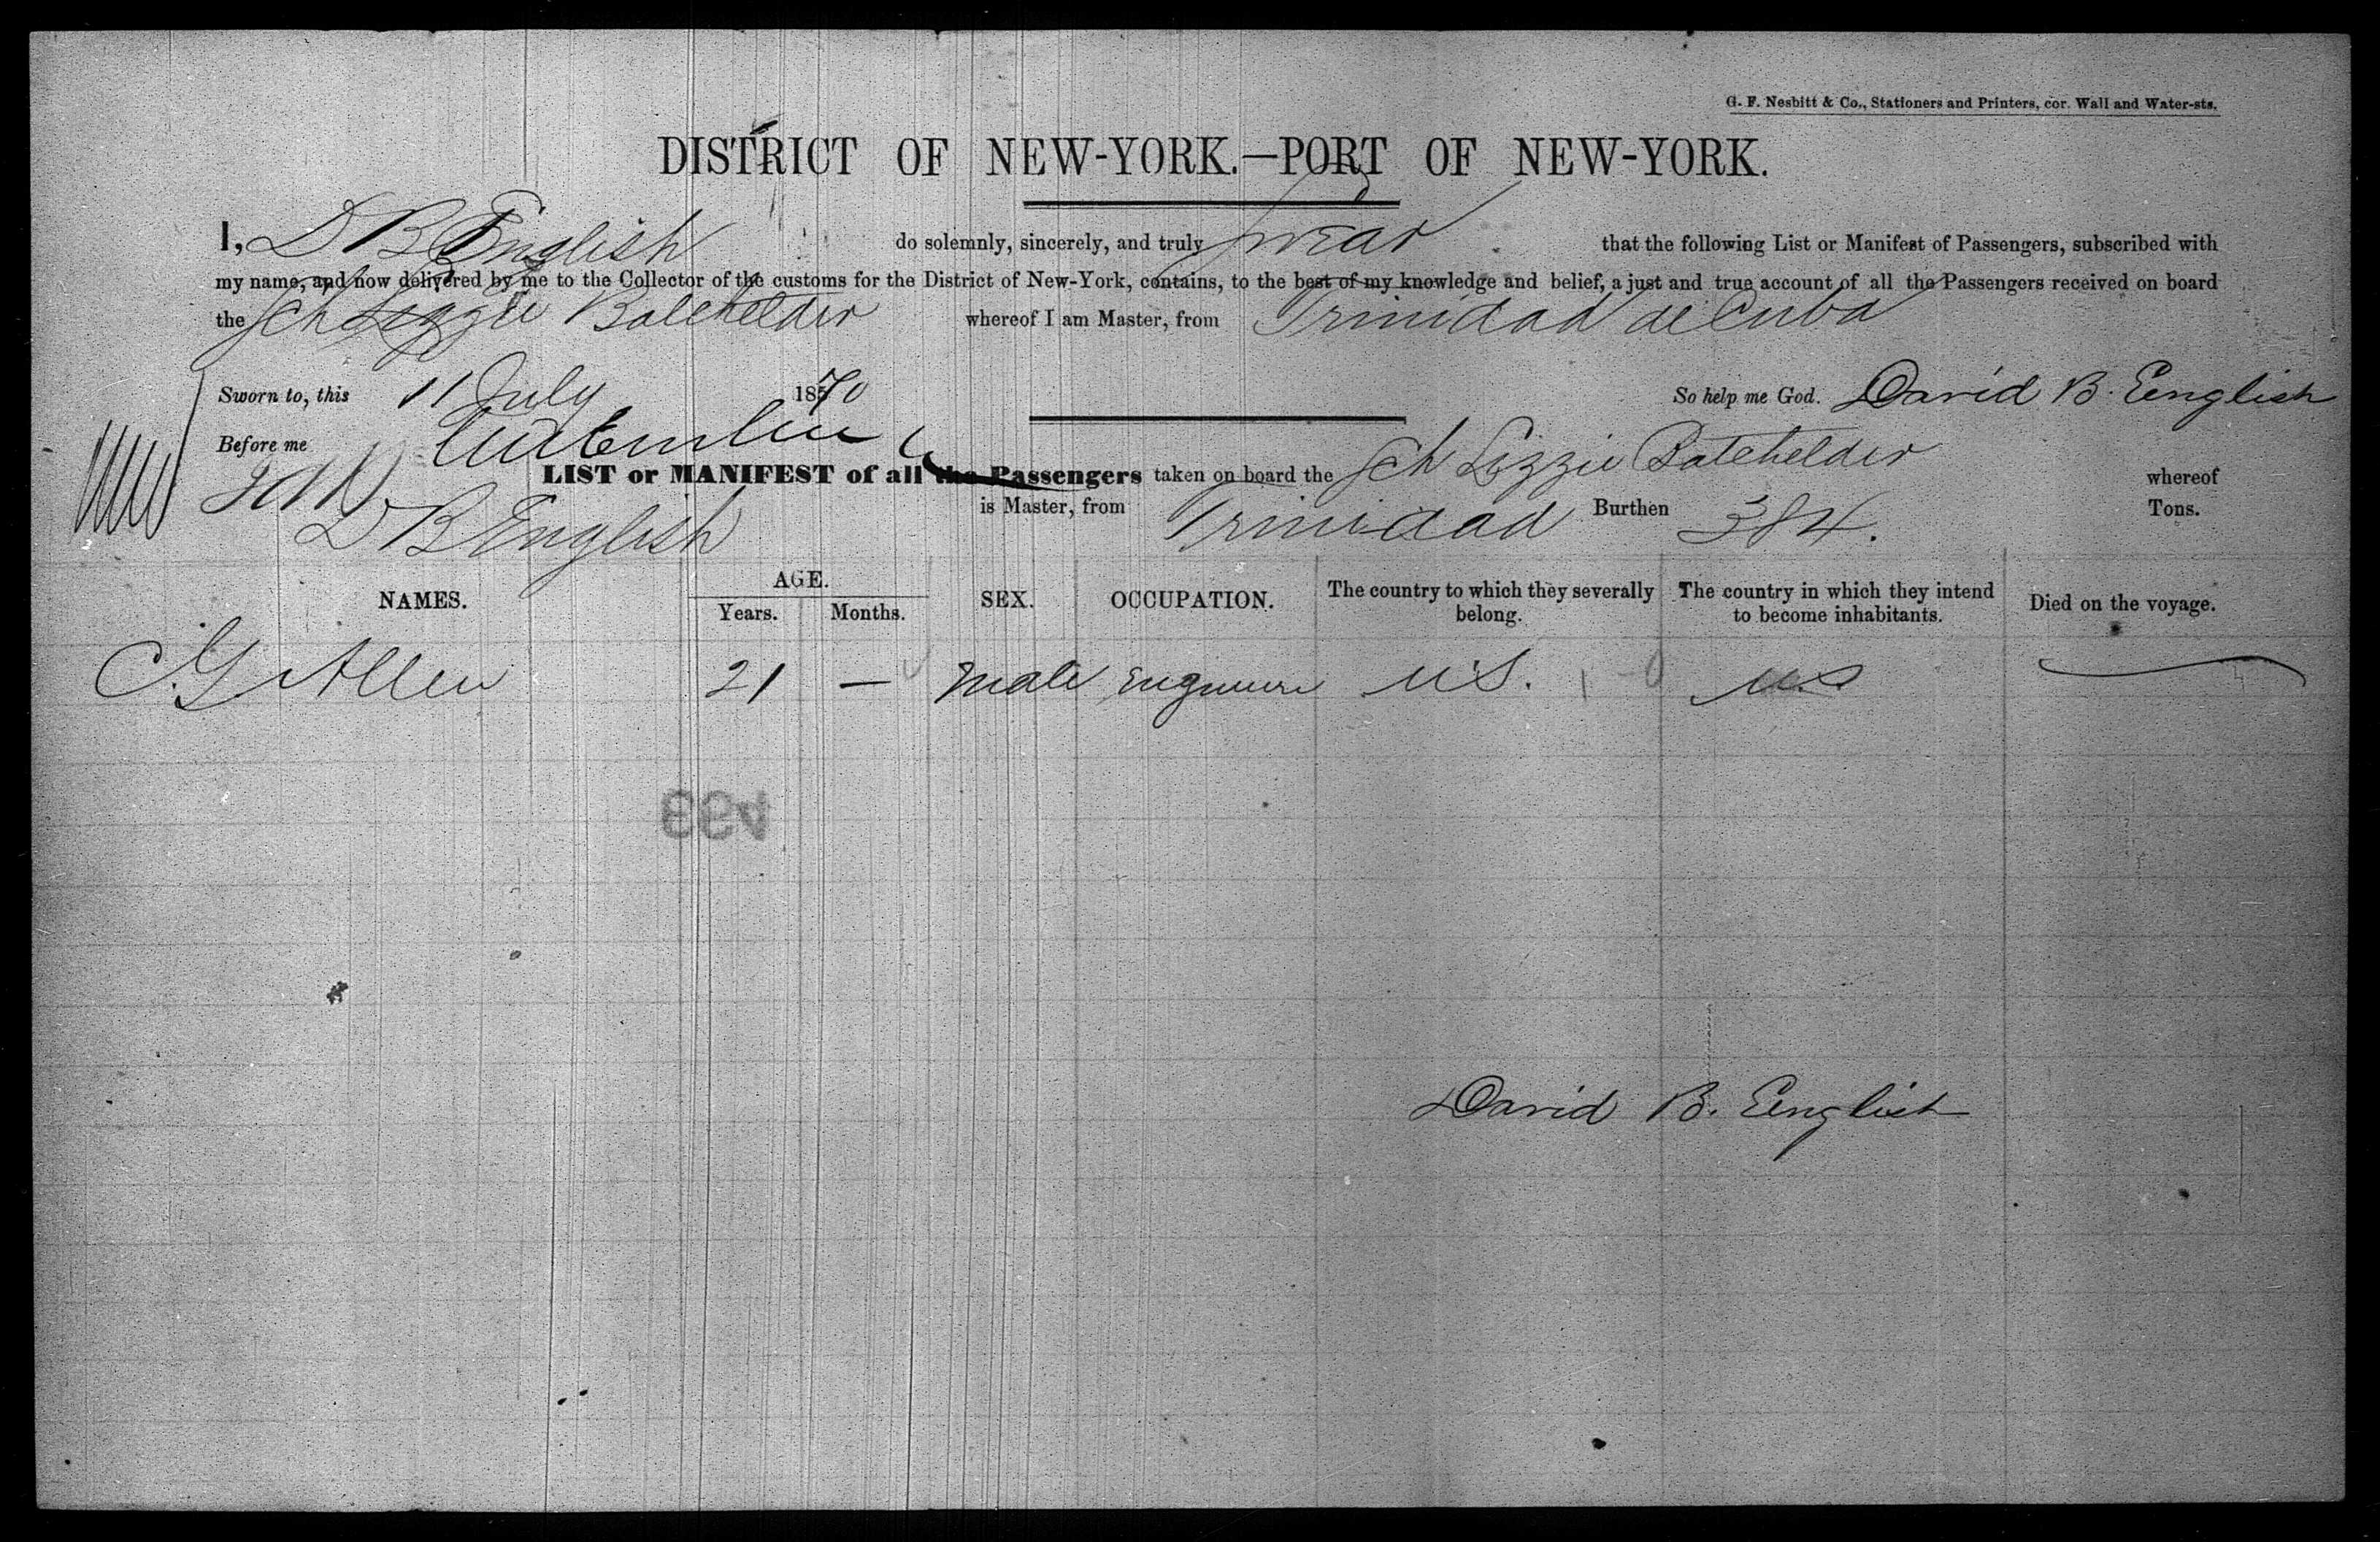 G. F. Nesbitt & Co., Stationers and Printers, cor. Wall and Water-sts.
DISTRICT OF NEW-YORK.—PORT OF NEW-YORK.
I, D B English do solemnly, sincerely, and truly swear that the following List or Manifest of Passengers, subscribed with
my name, and now delivered by me to the Collector of the customs for the District of New-York, contains, to the best of my knowledge and belief, a just and true account of all the Passengers received on board
the Sch Lizzie Batchelder whereof I am Master, from Trinidad de Cuba
Sworn to, this 11 July 1870 So help me God. David B. Eenglish
Before me
LIST or MANIFEST of all the Passengers taken on board the Sch Lizzie Batchelder whereof
D B English is Master, from Trinidad Burthen 384. Tons.
NAMES. AGE. Years. Months. SEX. OCCUPATION. The country to which they severally belong. The country in which they intend to become inhabitants. Died on the voyage.
Allen 21 — Male Engineer U.S. U.S
David B. Eenglish